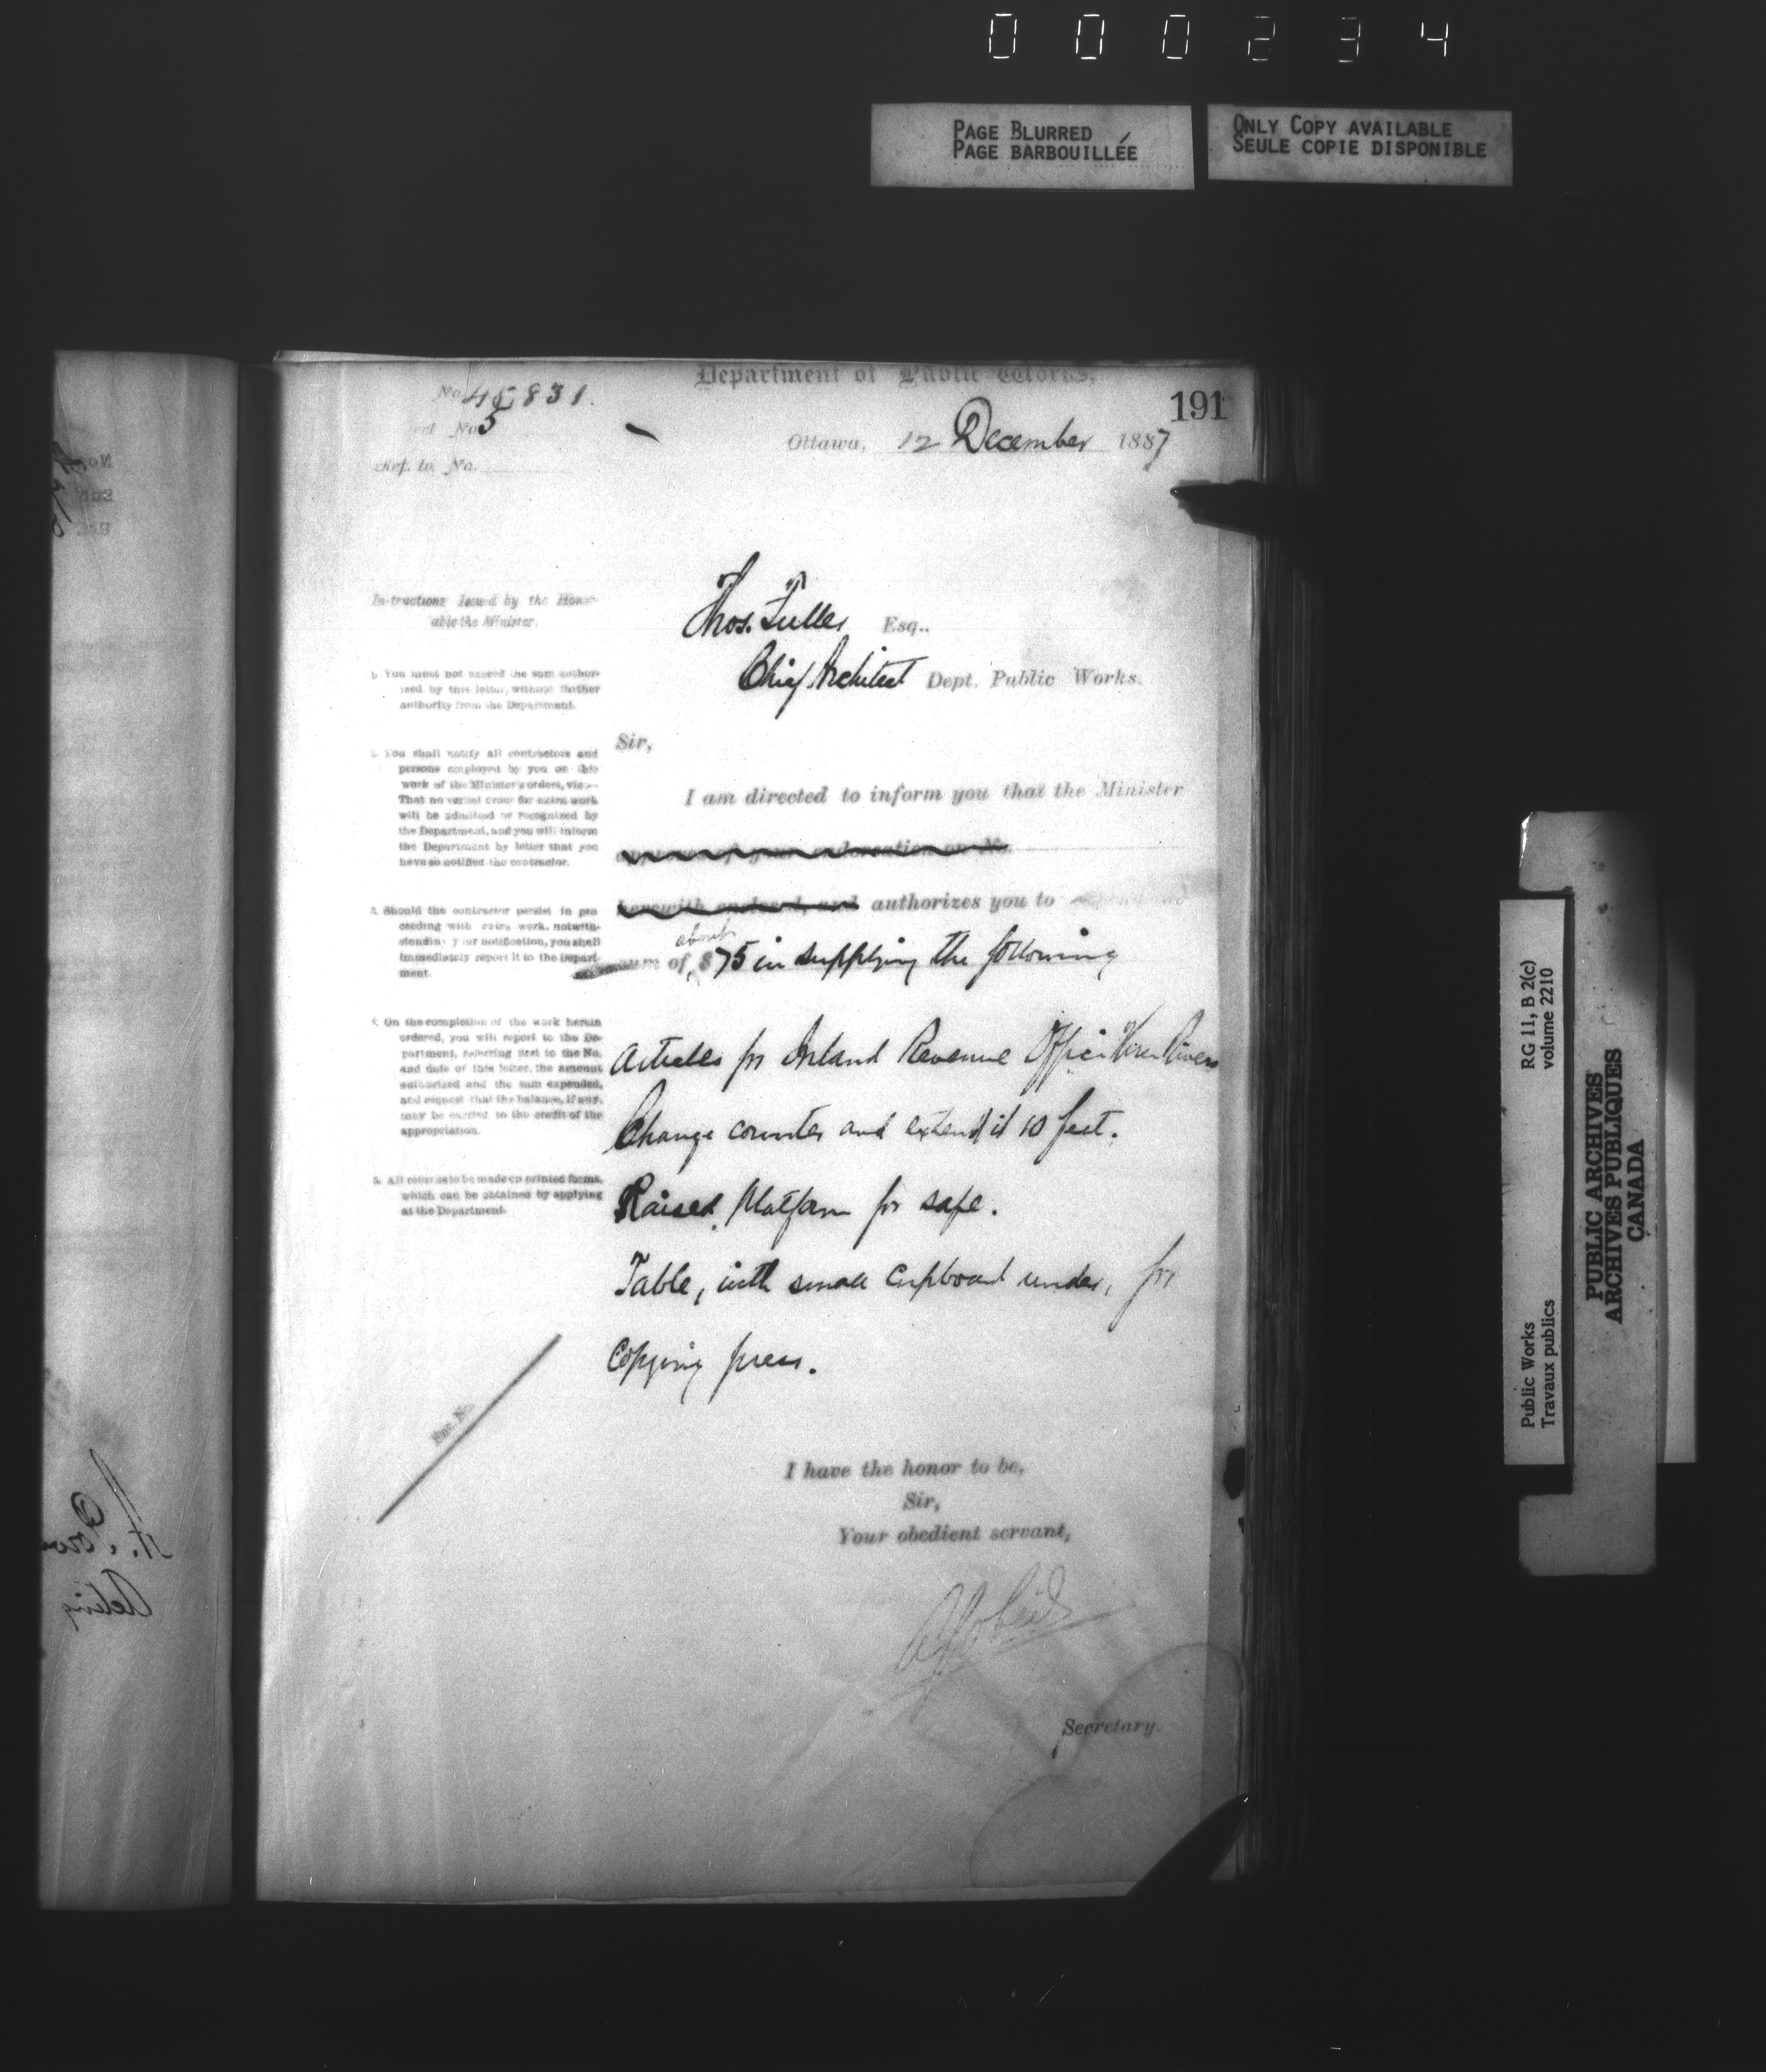 000234
PAGE BLURRED
PAGE BARBOUILLÉE
ONLY COPY AVAILABLE
SEULE COPIE DISPONIBLE
Department of Public Works,
191
No. 45831.
No 5
Ref. to No.
Ottawa, 12 December 1887
Thos. Fuller Esq..
Chief Architect Dept. Public Works.
Instructions Issued by the Honor-
able the Minister.
1. You must not exceed the sum author-
ized by this letter, without further
authority from the Department.
2. You shall notify all contractors and
persons employed by you on this
work of the Minister's orders, viz:—
That no verbal order for extra work
will be admitted or recognized by
the Department, and you will inform
the Department by letter that you
have so notified the contractor.
3. Should the contractor persist in pro
ceeding with extra work, notwith-
standing your notification, you shall
immediately report it to the Depart-
ment.
4. On the completion of the work herein
ordered, you will report to the De-
partment, referring first to the No.
and date of this letter, the amount
authorized and the sum expended,
and request that the balance, if any,
may be carried to the credit of the
appropriation.
5. All returns to be made on printed forms,
which can be obtained by applying
at the Department.
Sir,
I am directed to inform you that the Minister
herewith enclosed, and authorizes you to
about
of $75 in supplying the following
articles for Inland Revenue Office Three Rivers
Change counter and extend it 10 feet.
Raised Platform for safe.
Table, with small Cupboard under, for
Copying press.
Enc. No.
I have the honor to be,
Sir,
Your obedient servant,
Secretary.
RG 11, B 2(c)
volume 2210
Public Works
Travaux publics
PUBLIC ARCHIVES
ARCHIVES PUBLIQUES
CANADA